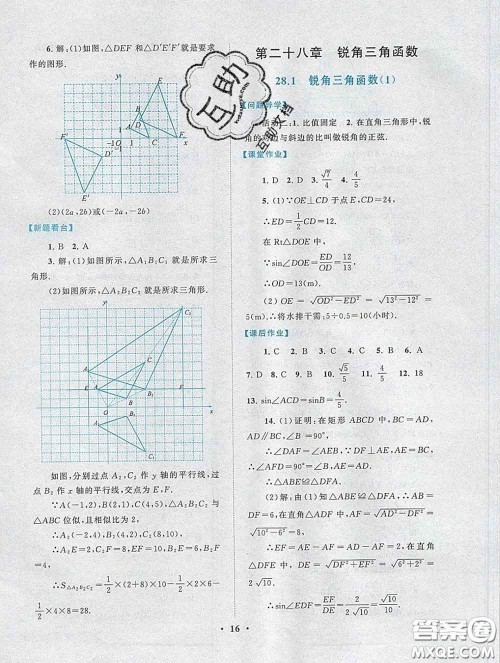 6. 解:(1)如图,△DEF 和△D′E′F′就是要求
作的图形.
(2)(2a,2b)或(-2a,-2b)
【新题看台】
1. B 2. A
3. 解:(1)如图所示,△A₁B₁C₁就是所求三
角形.
(2)如图所示,△A₂B₂C₂就是所求三角形.
如图,分别过点 A₂,C₂ 作 y 轴的平行线,过
点 B₂ 作 x 轴的平行线,交点为 E,F.
∵A(-1,2),B(2,1),C(4,5),△A₂B₂C₂ 与
△ABC 位似,且相似比为 2,
∴A₂(-2,4),B₂(4,2),C₂(8,10),
∴A₂E=2,C₂F=8,EF=10,B₂E=6,B₂F=4,
∴S△A₂B₂C₂=1/2×(2+8)×10-1/2×2×6-
1/2×4×8=28.
第二十八章 锐角三角函数
28.1 锐角三角函数(1)
【问题导学】
1. 比值固定 2. 在直角三角形中,锐
角的对边与斜边的比叫做锐角的正弦.
【课堂作业】
1. D 2. D 3. √7/4 4. 4/5
5. (1)∵OE⊥CD 于点 E,CD=24,
∴ED=1/2CD=12.
在 Rt△DOE 中,
∵sin∠DOE=ED/OD=12/13,
∴OD=13(m).
(2)OE=√(OD²-ED²)=√(13²-12²)=
5(m).∴将水排干需:5÷0.5=10(小时).
【课后作业】
1. C 2. C 3. A 4. B 5. B 6. A
7. D 8. D 9. D 10. √5/5 11. 4/5 12. 18
13. sin∠ACD=sinB=4/5.
14. (1)证明:在矩形 ABCD 中,BC=AD,
AD∥BC,∠B=90°,
∴∠DAF=∠AEB.∵DF⊥AE,AE=BC,
∴∠AFD=90°,AE=AD.
∴△ABE≌△DFA.
(2)由(1)知△ABE≌△DFA.∴AB=
DF=6,在直角△ADF 中,AF=√(AD²-DF²)
=√(10²-6²)=8,
∴EF=AE-AF=AD-AF=2.在直角
△DFE 中,DE=√(DF²+EF²)=√(6²+2²)=
2√10.
∴sin∠EDF=EF/DE=2/(2√10)=√10/10.
16
互助
互助文档
答案圈
MXQE.COM